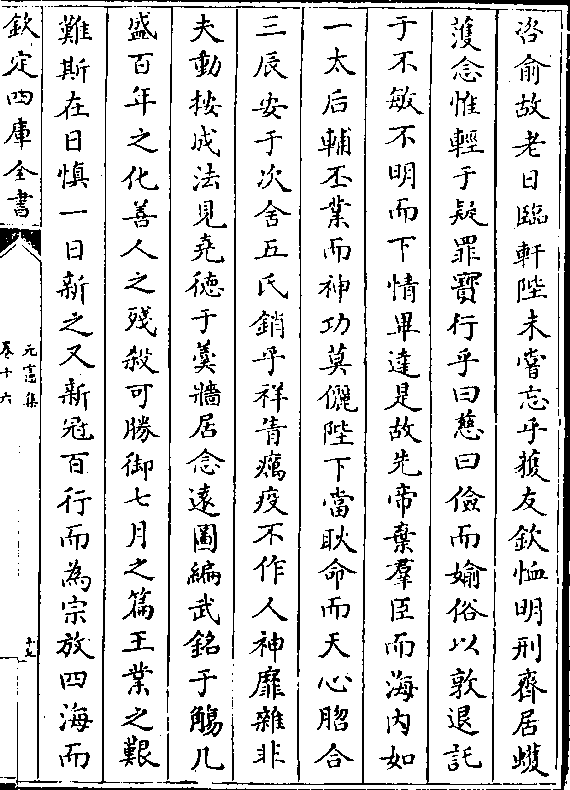 咨俞故老日臨軒陛未嘗忘乎獲友欽恤明刑齊居蠖
蒦念惟輕于疑罪寳行乎曰慈曰儉而媮俗以敦退託
于不敏不明而下情畢達是故先帝棄羣臣而海内如
一太后輔丕業而神功莫儷陛下當耿命而天心胎合
三辰安于次舍五氏銷乎祥眚癘疫不作人神靡雜非
夫動按成法見堯徳于羮牆居念逺圖編武銘于觴几
盛百年之化善人之殘殺可勝御七月之篇王業之艱
難斯在日慎一日新之又新冠百行而為宗放四海而
欽定四庫全書
元憲集
卷十六
十五